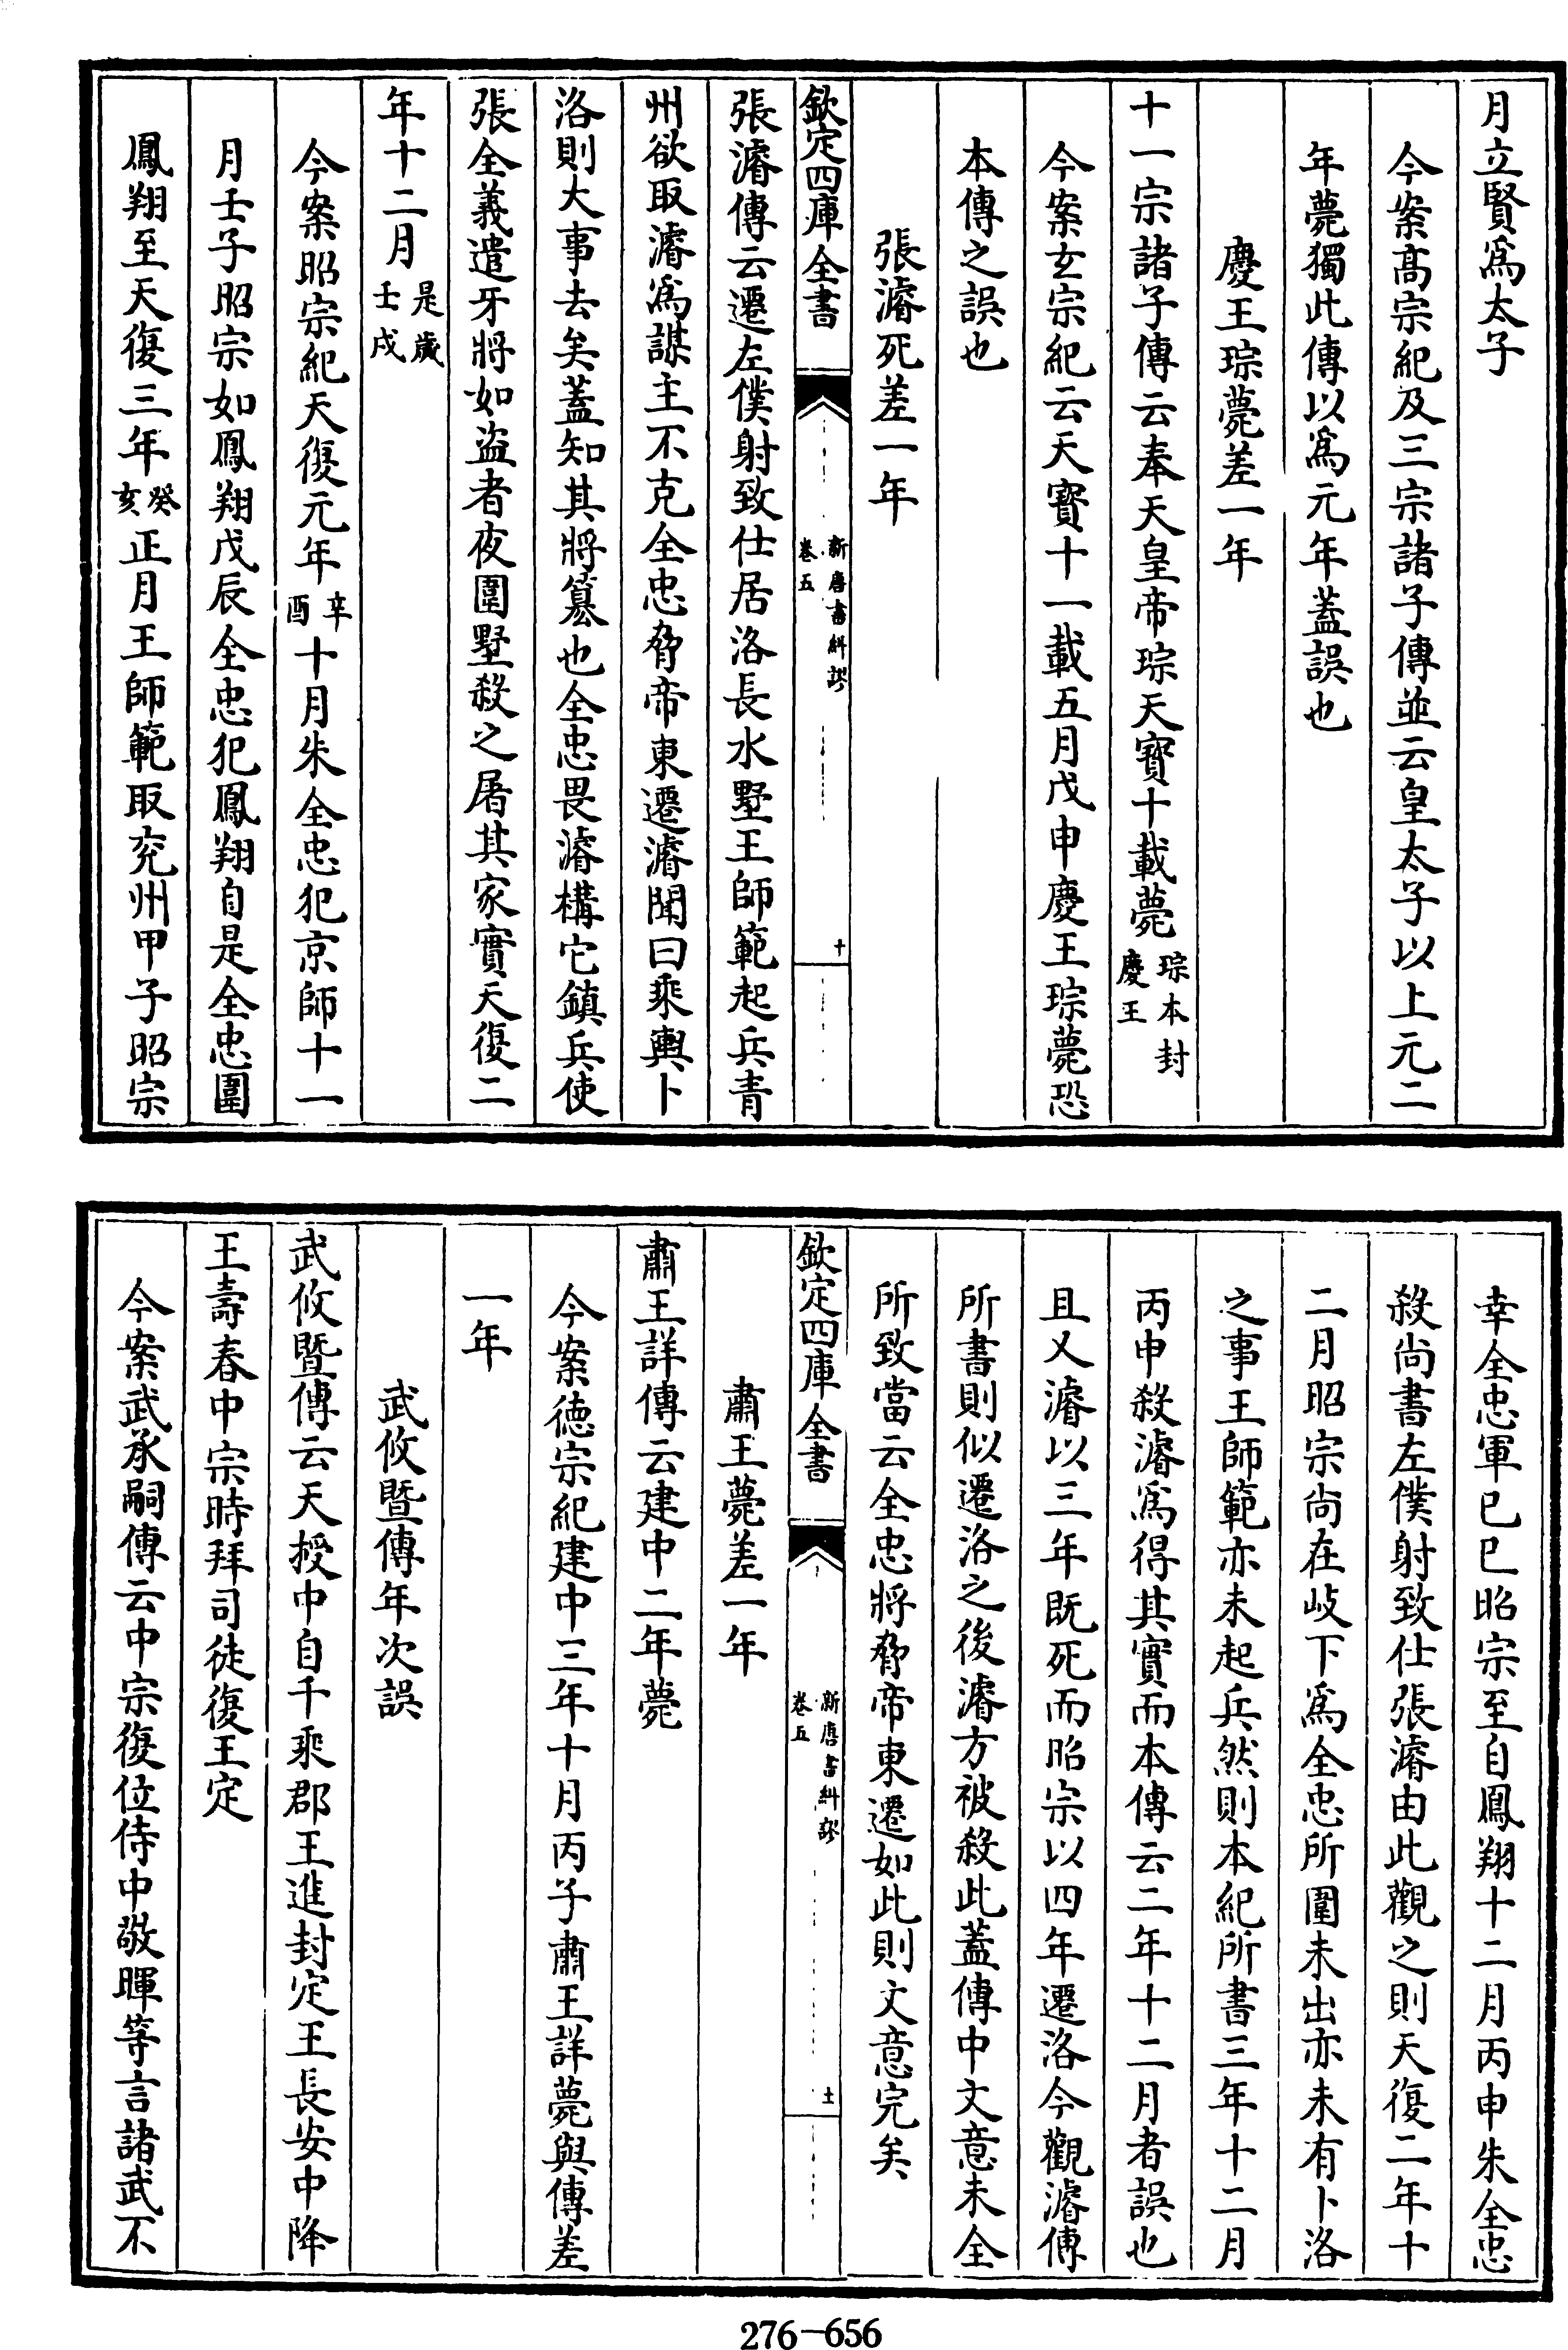 月立賢為太子
今案髙宗紀及三宗諸子傳並云皇太子以上元二
年薨獨此傳以為元年蓋誤也
慶王琮薨差一年
十一宗諸子傳云奉天皇帝琮天寳十載薨琮本封慶王
今案玄宗紀云天寳十一載五月戊申慶王琮薨恐
本傳之誤也
張濬死差一年
欽定四庫全書
新唐書糾謬
卷五
十
張濬傳云遷左僕射致仕居洛長水墅王師範起兵青
州欲取濬為謀主不克全忠脅帝東遷濬聞曰乘輿卜
洛則大事去矣蓋知其將簒也全忠畏濬構它鎮兵使
張全義遣牙將如盗者夜圍墅殺之屠其家實天復二
年十二月是歲壬戌
今案昭宗紀天復元年辛酉十月朱全忠犯京師十一
月壬子昭宗如鳳翔戊辰全忠犯鳳翔自是全忠圍
鳳翔至天復三年癸亥正月王師範取兖州甲子昭宗
幸全忠軍已巳昭宗至自鳳翔十二月丙申朱全忠
殺尚書左僕射致仕張濬由此觀之則天復二年十
二月昭宗尚在岐下為全忠所圍未出亦未有卜洛
之事王師範亦未起兵然則本紀所書三年十二月
丙申殺濬為得其實而本傳云二年十二月者誤也
且又濬以三年既死而昭宗以四年遷洛今觀濬傳
所書則似遷洛之後濬方被殺此蓋傳中文意未全
所致當云全忠將脅帝東遷如此則文意完矣
欽定四庫全書
新唐書糾謬
卷五
土
肅王薨差一年
肅王詳傳云建中二年薨
今案徳宗紀建中三年十月丙子肅王詳薨與傳差
一年
武攸暨傳年次誤
武攸暨傳云天授中自千乘郡王進封定王長安中降
王壽春中宗時拜司徒復王定
今案武承嗣傳云中宗復位侍中敬暉等言諸武不
276-656